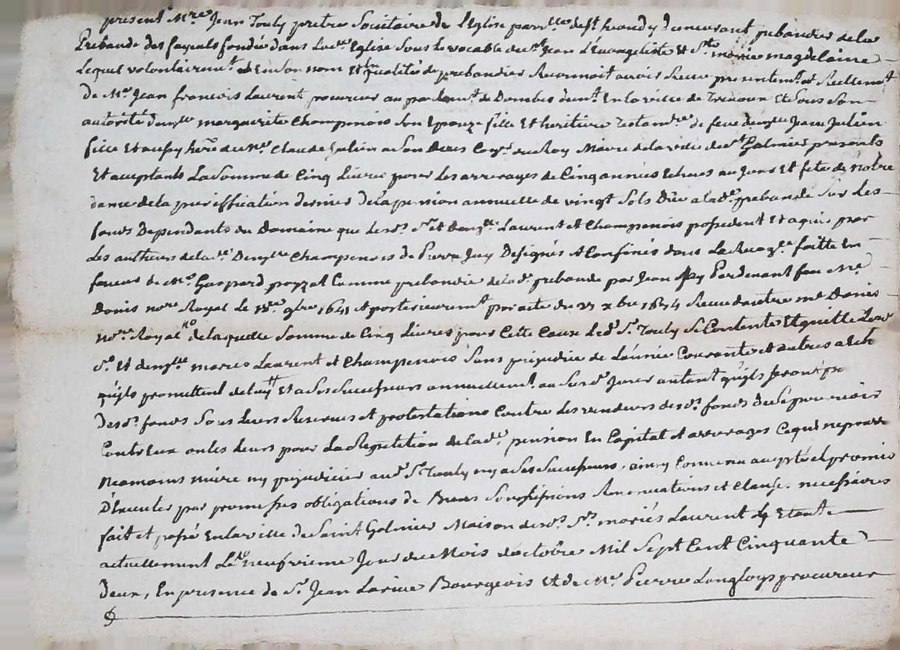 present Mre Jean Touly pretre Societaire de l'Eglise parlle de st heand y demeurant prebandier de la
Prebande des fayeuls fondée dans lade Eglise Sous le vocable de st Jean L'Evangeliste et Ste marie magdelaine
Lequel volontairemt et En Son nom Et qualité de prebandier Reconnoit avoir Receu presentemt et Reellemt
De Mre Jean francois Laurent procureur au parlemt de Dombes demt En la ville de Trevoux Et Sous Son
autorité demlle marguerite Champenois Son Epouze fille Et heritiere Testamre de feue demlle Jeanne Jullien
fille Et aussy here de Mre Claude Jullien a Son deces Coner du Roy Maire de la ville de st Galmier presents
Et acceptants La Somme de Cinq Livres pour Les arrerages de Cinq années Echues au jour Et fete de Notre
dame de la purification dernier de la pension annuelle de vingt Sols Düe a lade prebande Sur des
fonds Dependants du Domaine que lesds Sr et demlle Laurent et Champenois possedent Et aquis par
Les autheurs de lade Demlle Champenois de Pierre Designés et Confinés dans La Recogce faitte En
faveur de Mre Gaspard poyzat Comme prebandier de lade prebande par Jean ferdinant
Denis nore Royal Le 9bre 1641 et posterieuremt par acte du 27 xbre 1654 Receu dautre me Denis
nore Royal de laquelle Somme de Cinq Livres pour Cette Cause led Sr Touly Se Contente Et quitte Lesd
Sr Et demlle mariés Laurent et Champenois Sans prejudice de L'année Courante et autres a Ech
quils promettent de luy Et a Ses Successeurs annuellement au Susd Jour autant quils seront
Desds fonds Sous Leurs Reserves et protestations Contre Les vendeurs desds fonds de Se pourvoir
Contre Eux ou les Leurs pour La Repetition de lade pension En Capital et arrerages Ce qui ne pourra
Neamoins nuire ny prejudicier aud Sr Touly ny a Ses Successeurs, ainsy Convenu accepté et promis
D'Executer par promesses obligations de Biens Soumissions Renonciations et Clauses necessaires
fait et passé En la ville de Saint Galmier Maison desds Srs mariés Laurent Etant
actuellement Le neufvieme Jour du Mois d'octobre Mil Sept Cent Cinquante
Deux, En presence de Sr Jean Bourgeois Et de Me Pierre Langloys procureur